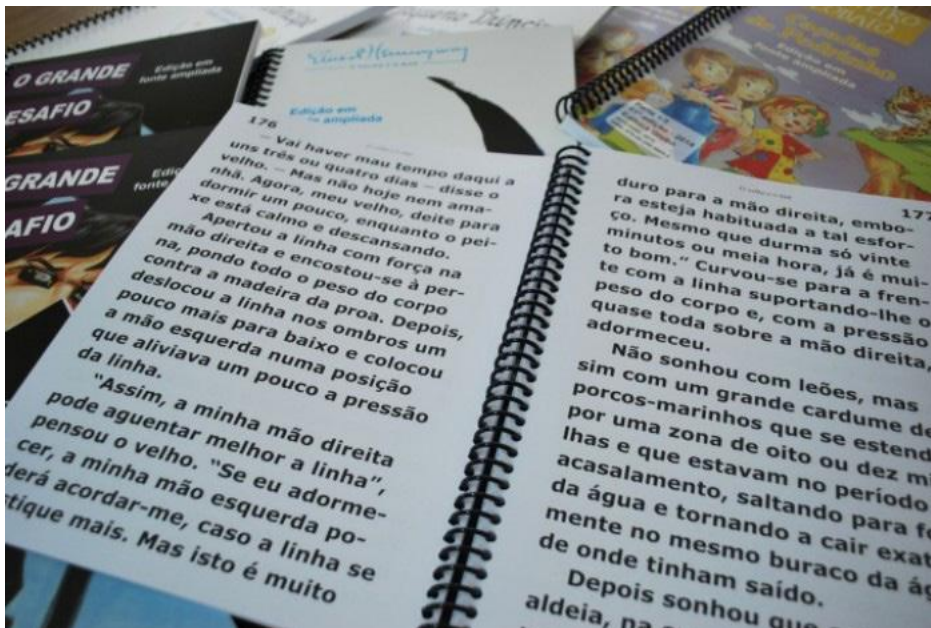 O GRANDE
DESAFIO
Edição em
fonte ampliada
GRANDE
AFIO
Edição
fonte
Ernest Hemingway
Edição em
ampliada
Edição em
fonte ampliada
176
— Vai haver mau tempo daqui a
uns três ou quatro dias — disse o
velho. — Mas não hoje nem ama-
nhã. Agora, meu velho, deite para
dormir um pouco, enquanto o pei-
xe está calmo e descansando.
Apertou a linha com força na
mão direita e encostou-se à per-
na, pondo todo o peso do corpo
contra a madeira da proa. Depois,
deslocou a linha nos ombros um
pouco mais para baixo e colocou
a mão esquerda numa posição
que aliviava um pouco a pressão
da linha.
"Assim, a minha mão direita
pode aguentar melhor a linha",
pensou o velho. "Se eu adorme-
cer, a minha mão esquerda po-
derá acordar-me, caso a linha se
stique mais. Mas isto é muito
177
duro para a mão direita, embo-
ra esteja habituada a tal esfor-
ço. Mesmo que durma só vinte
minutos ou meia hora, já é mui-
to bom." Curvou-se para a fren-
te com a linha suportando-lhe o
peso do corpo e, com a pressão
quase toda sobre a mão direita,
adormeceu.
Não sonhou com leões, mas
sim com um grande cardume de
porcos-marinhos que se estend
por uma zona de oito ou dez mi
lhas e que estavam no período
acasalamento, saltando para fo
da água e tornando a cair exat
mente no mesmo buraco da ág
de onde tinham saído.
Depois sonhou que
aldeia, na